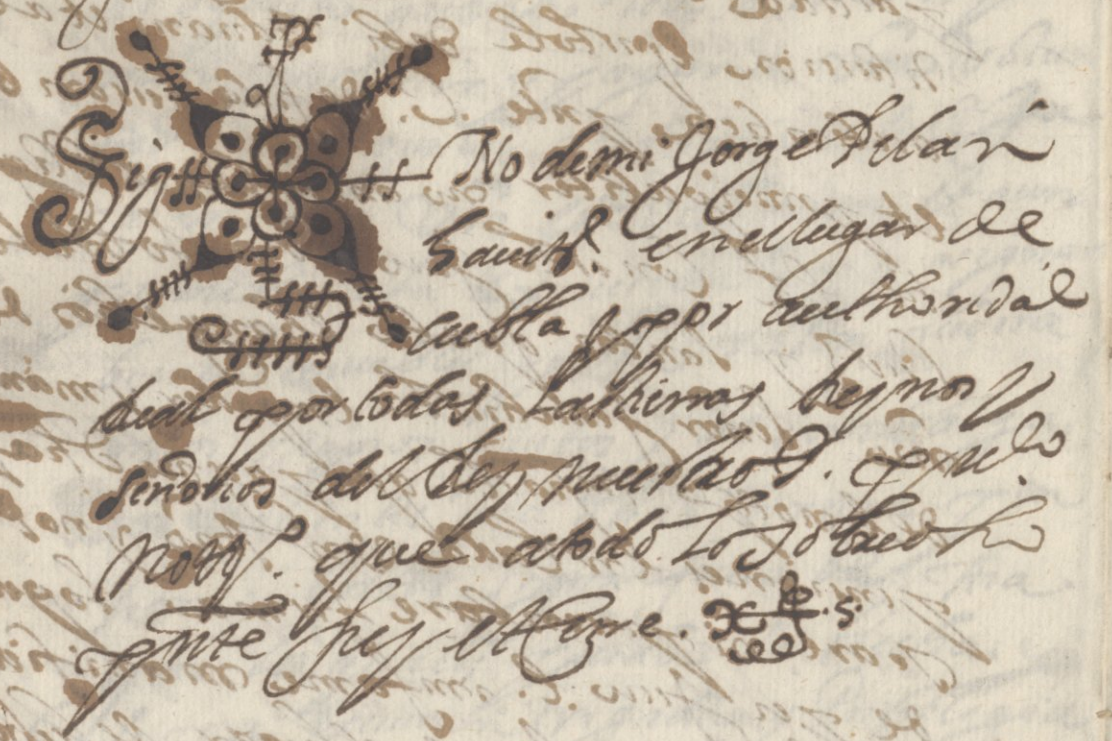 Sig No de mi Jorge Pelari
hauitt. en el lugar de
cubla y por authoridad
Real por todas las tierras Reynos y
señorios del Rey nuestro S. publo
Nott. que a todo lo sobredho
pnte fuy et Cerre.